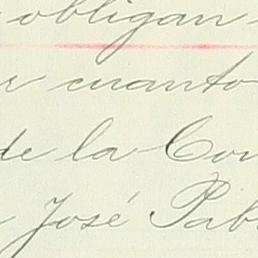 obligan
cuanto
de la Con
José Pab